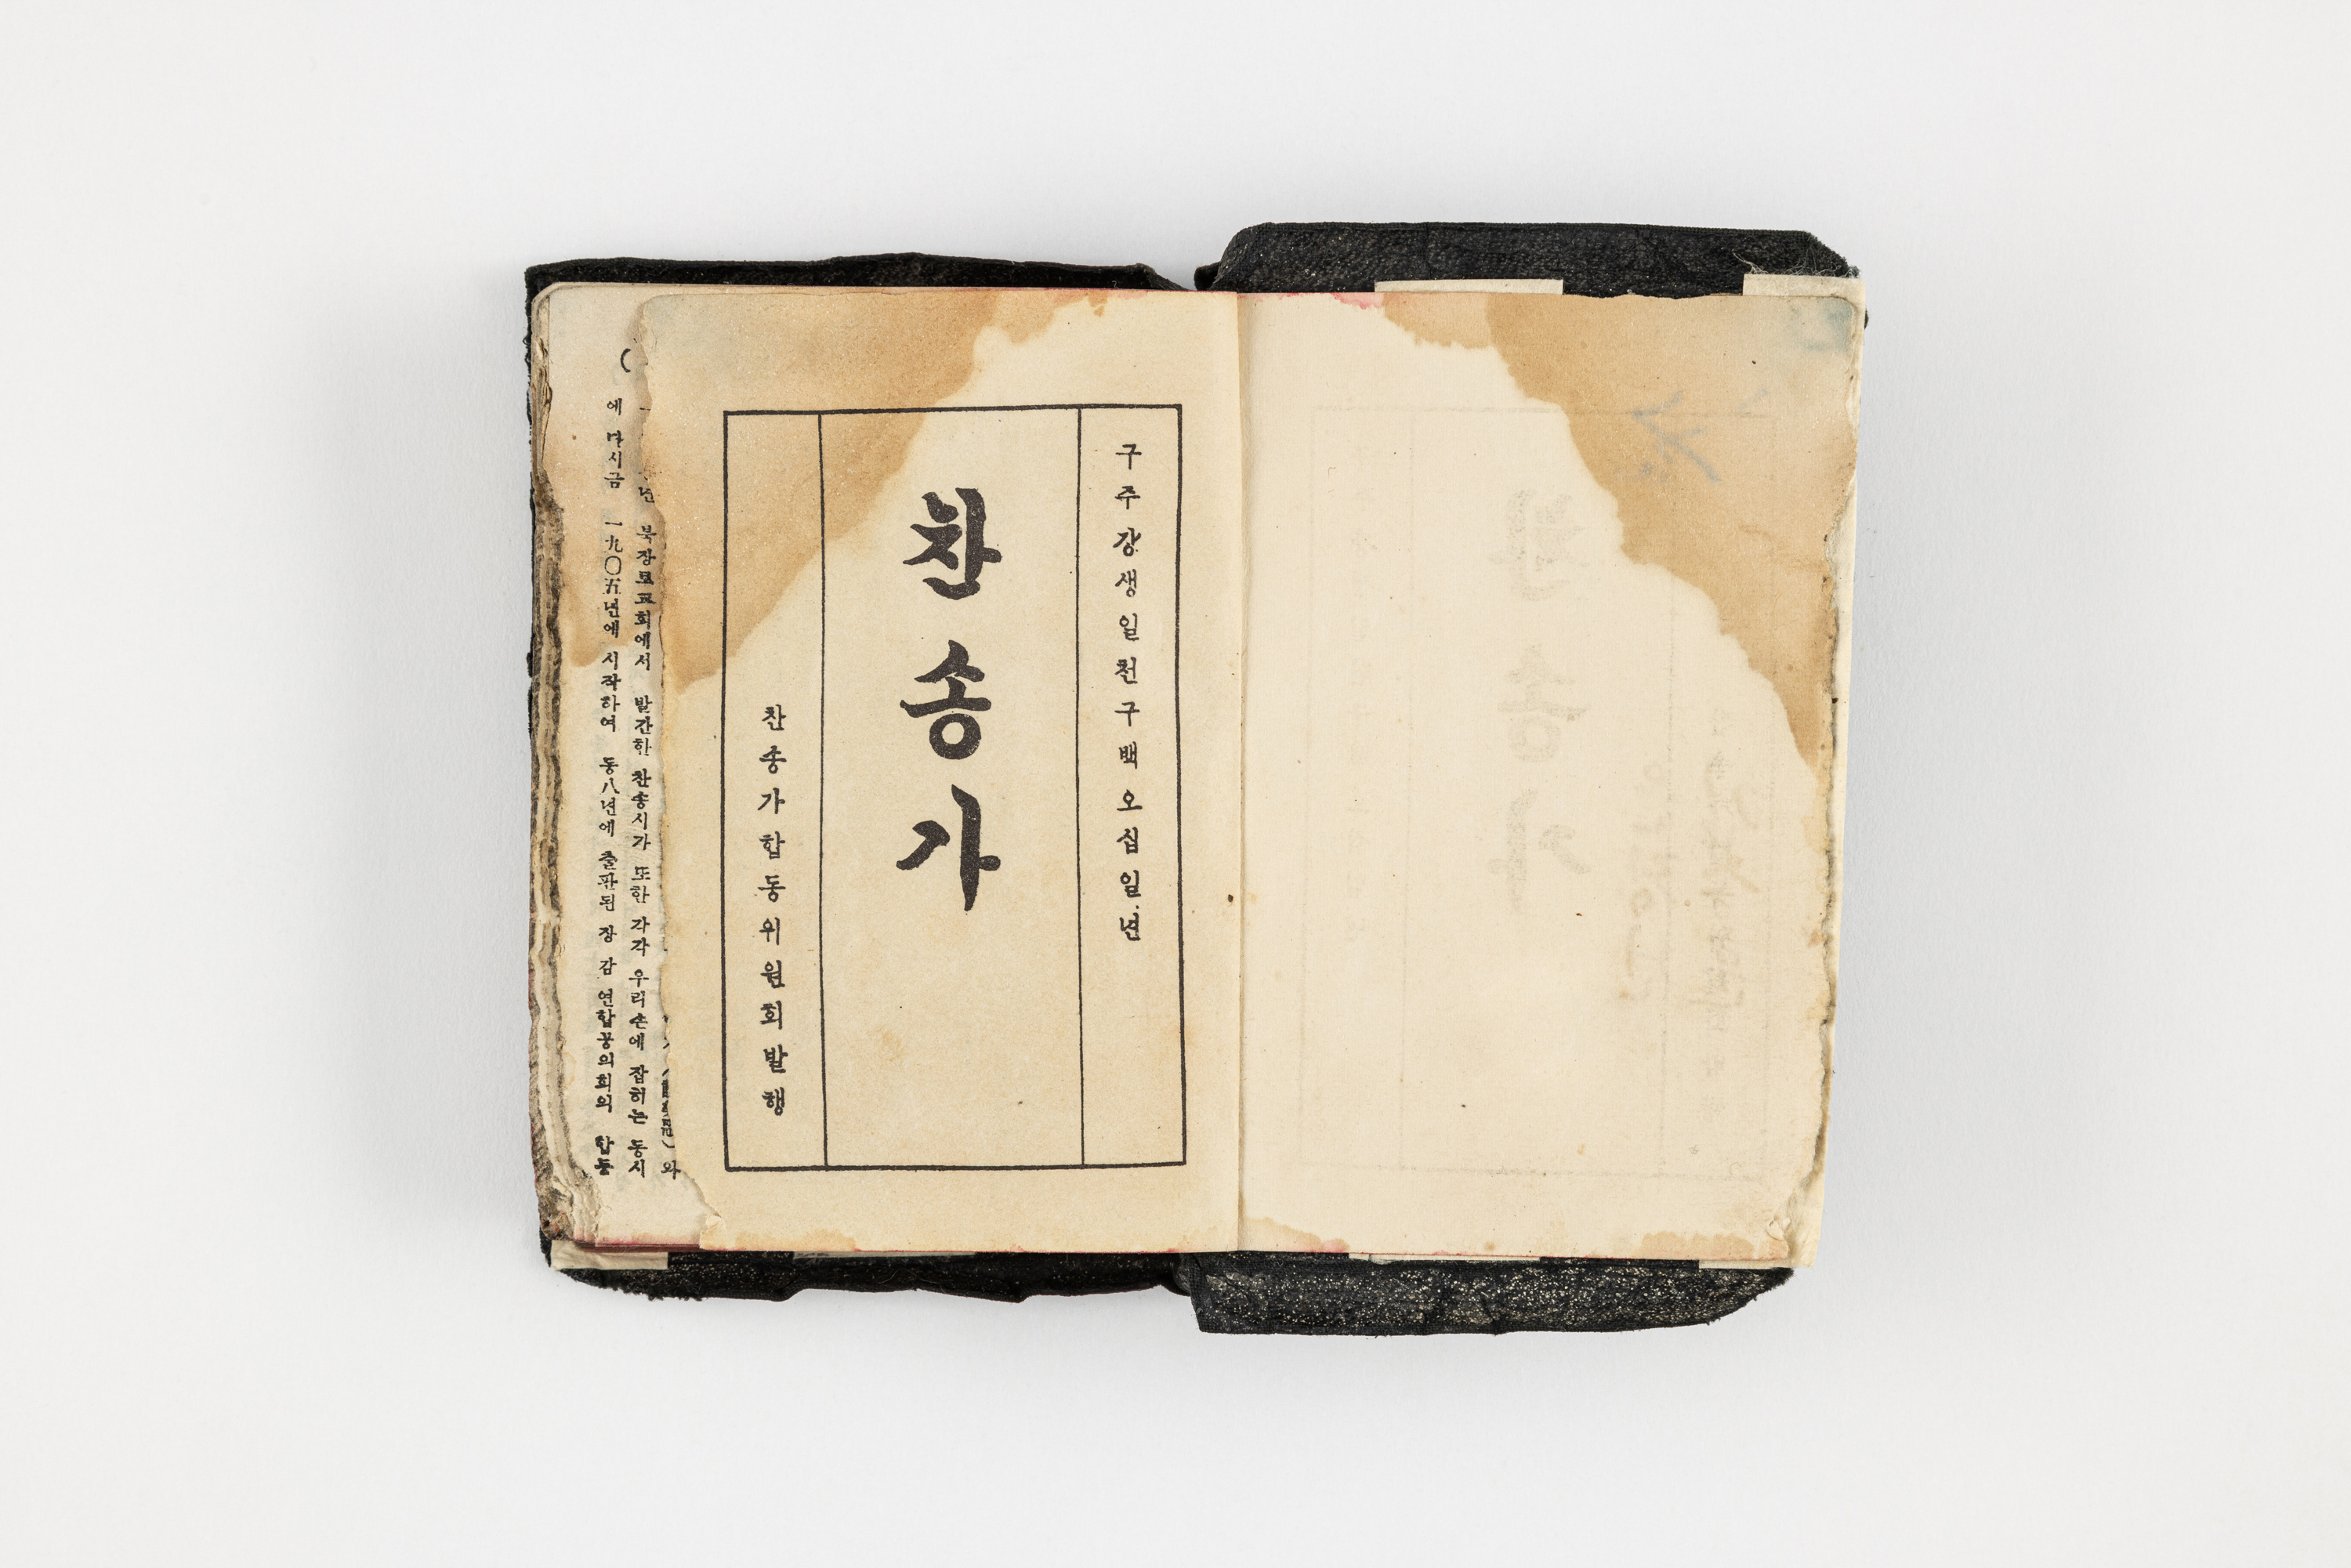 구주강생일천구백오십일년
찬송가
찬송가합동위원회발행
와
년 북장로교회에서 발간한 찬송시가 또한 각각 우리손에 잡히는 동시
에 다시금 一九〇五년에 시작하여 동八년에 출판된 장 감 연합공의회의 합동